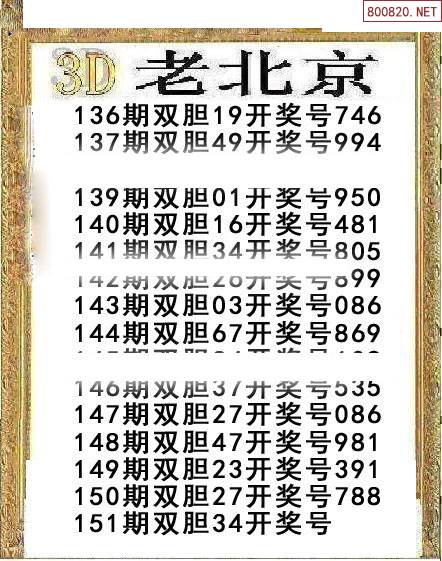 800820.NET
3D 老北京
136期双胆19开奖号746
137期双胆49开奖号994
139期双胆01开奖号950
140期双胆16开奖号481
141期双胆34开奖号805
142期双胆26开奖号899
143期双胆03开奖号086
144期双胆67开奖号869
146期双胆37开奖号535
147期双胆27开奖号086
148期双胆47开奖号981
149期双胆23开奖号391
150期双胆27开奖号788
151期双胆34开奖号